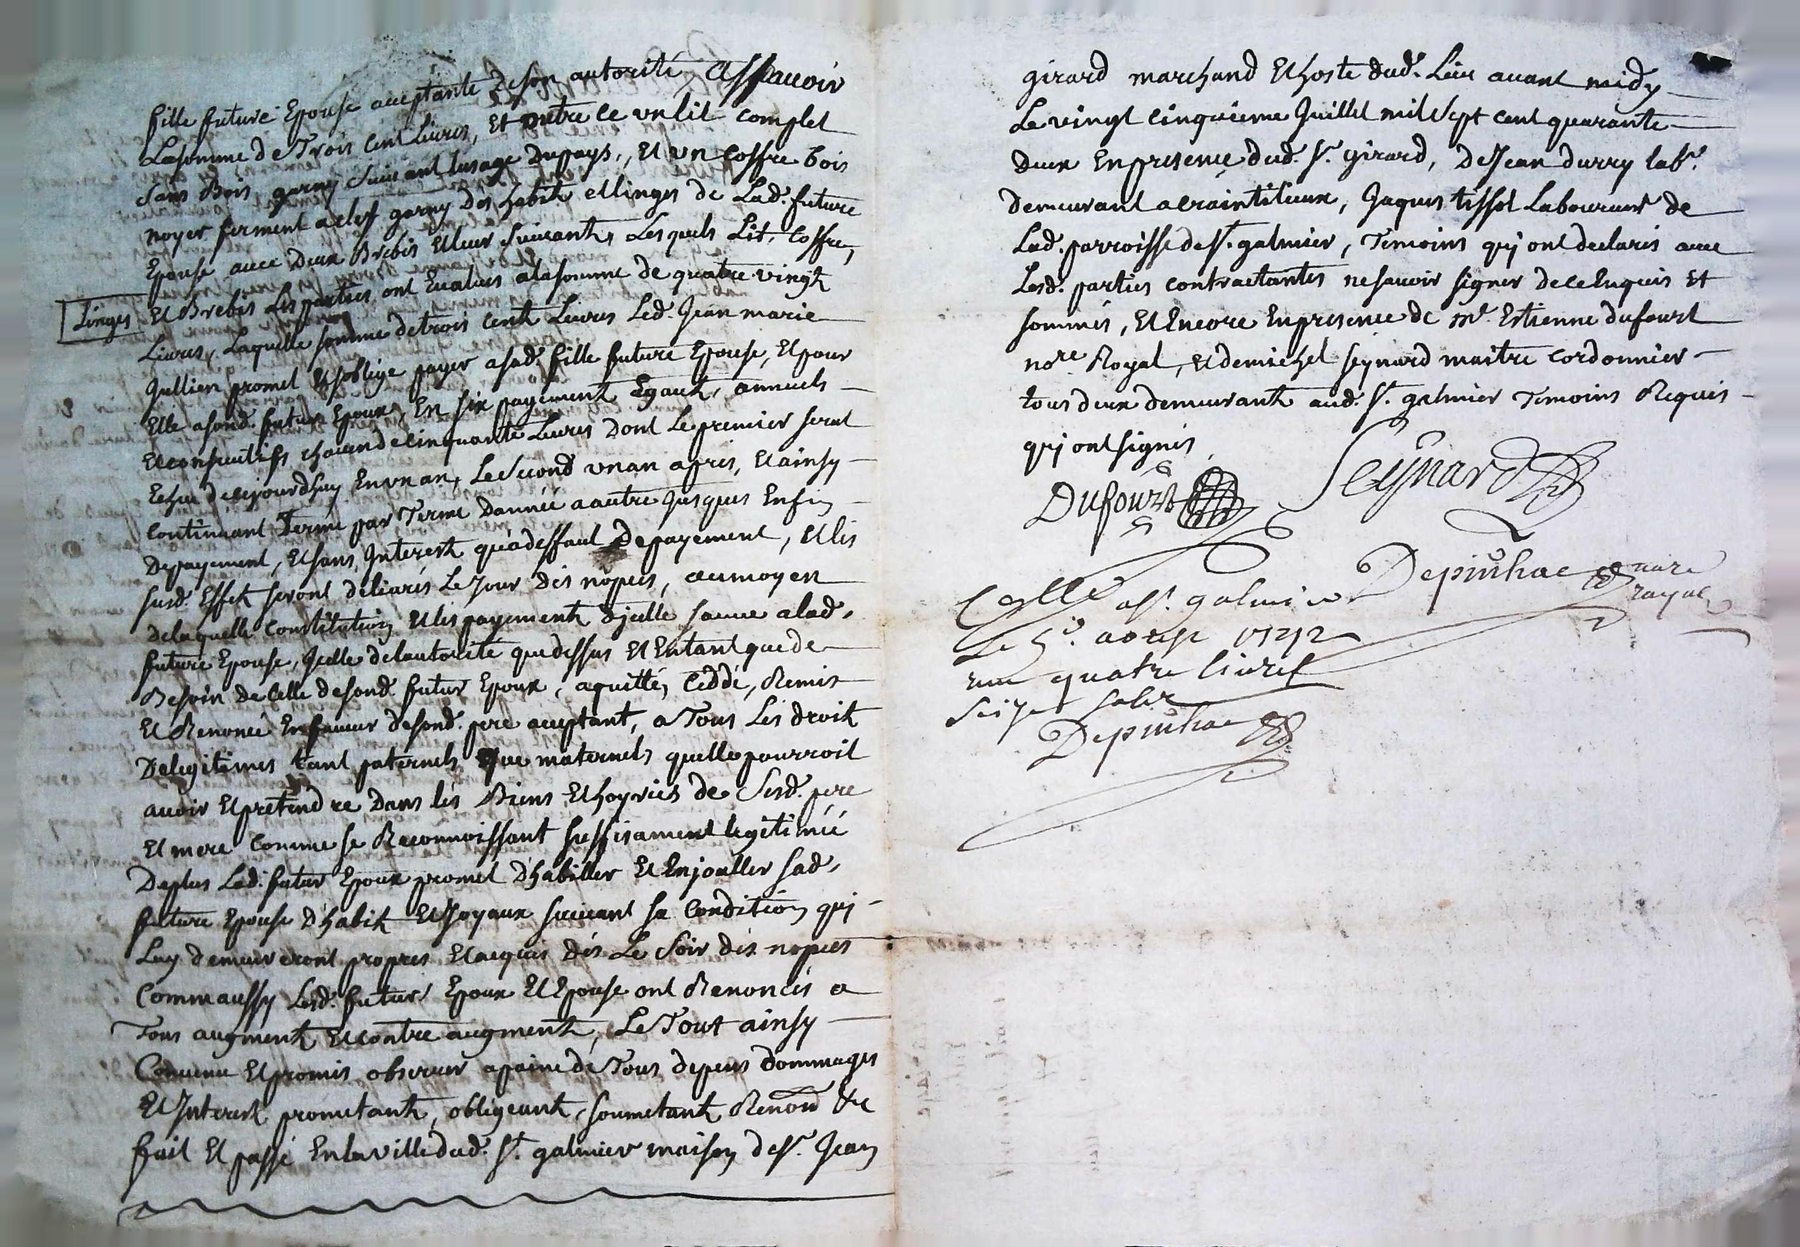 fille future Epouse acceptante de son autorité assauoir
La somme de Trois cent Livres, Et outre ce un lit complet
sans Bois, garny suiuant lusage du pays, Et un Coffre bois
noyer ferment a clef garny des habits et linges de Lad. future
Epouse auec deux Brebis et leur suiuants, Lesquels Lit, Coffre,
Linges Et Brebis Les parties ont Eualués a la somme de quatre vingt
Liures, Laquelle somme de trois Cent Liures Led. Jean marie
Jullien promet Et soblige payer a sad. fille future Epouse, Et pour
Elle a sond. futur Epoux, En six payements Egaux, annuels
Et consecutifs chacun de cinquante Liures dont Le premier serat
Echu de cejourdhuy En un an, Le second un an apres, Et ainsy
Continuant Terme par Terme d'année a autre jusques Enfin
De payement, Et sans Interest qu'a deffaut de payement, Et les
susd. Effets seront déliurés Le Jour des nopces, au moyen
de laquelle Constitution Et les payements d'jcelle sauue a lad.
future Epouse, Jcelle de lautorité que dessus Et Entant que de
Besoin de celle de sond. futur Epoux, a quitté, Ceddé, Remis
Et Renoncé En faueur de sond. pere acceptant, a Tous Les droits
De legitimes tant paternels que maternels quelle pourroit
auoir Et pretendre Dans les Biens Et hoyries de Sesd. pere
Et mere Comme se Reconnoissant suffisament legitimée
De plus Led. futur Epoux promet d'habiller Et Enjoaller sad.
future Epouse D'habits Et Joyaux suiuant sa Condition qui
Luy demeureront propres Et acquis dés Le Soir des nopces
Comm aussy Lesd. futur Epoux Et Epouse ont Renoncés a
Tous augments Et contre augments, Le Tout ainsy
Conuenu Et promis obseruer a paine de Tous depens dommages
Et Interests promettants, obligeants, soumetants Renonc. &c
fait Et passé En la ville dud. St. galmier maison de Sr. Jean
girard marchand Et hoste dud. Lieu auant midy
Le vingt cinquieme Juillet mil sept cent quarante
deux En presence dud. Sr. girard, De Jean durry labr.
demeurant a craintilieux, Jaques tissot Laboureur de
Lad. parroisse de St. galmier, Temoins qui ont declarés auec
Lesd. parties contractantes ne sauoir signer de ce Enquis Et
sommés, Et Encore En presence de Mr. Estienne dufourt
nore. Royal, Et de michel seynard maitre Cordonnier
tous deux demeurants aud. St. galmier Temoins Requis
qui ont signés
Dufourt Seynard
Depinhac nore
royal
Collé a St. galmier
Le 5e. aoust 1742
reçu quatre liures
seize sols
Depinhac